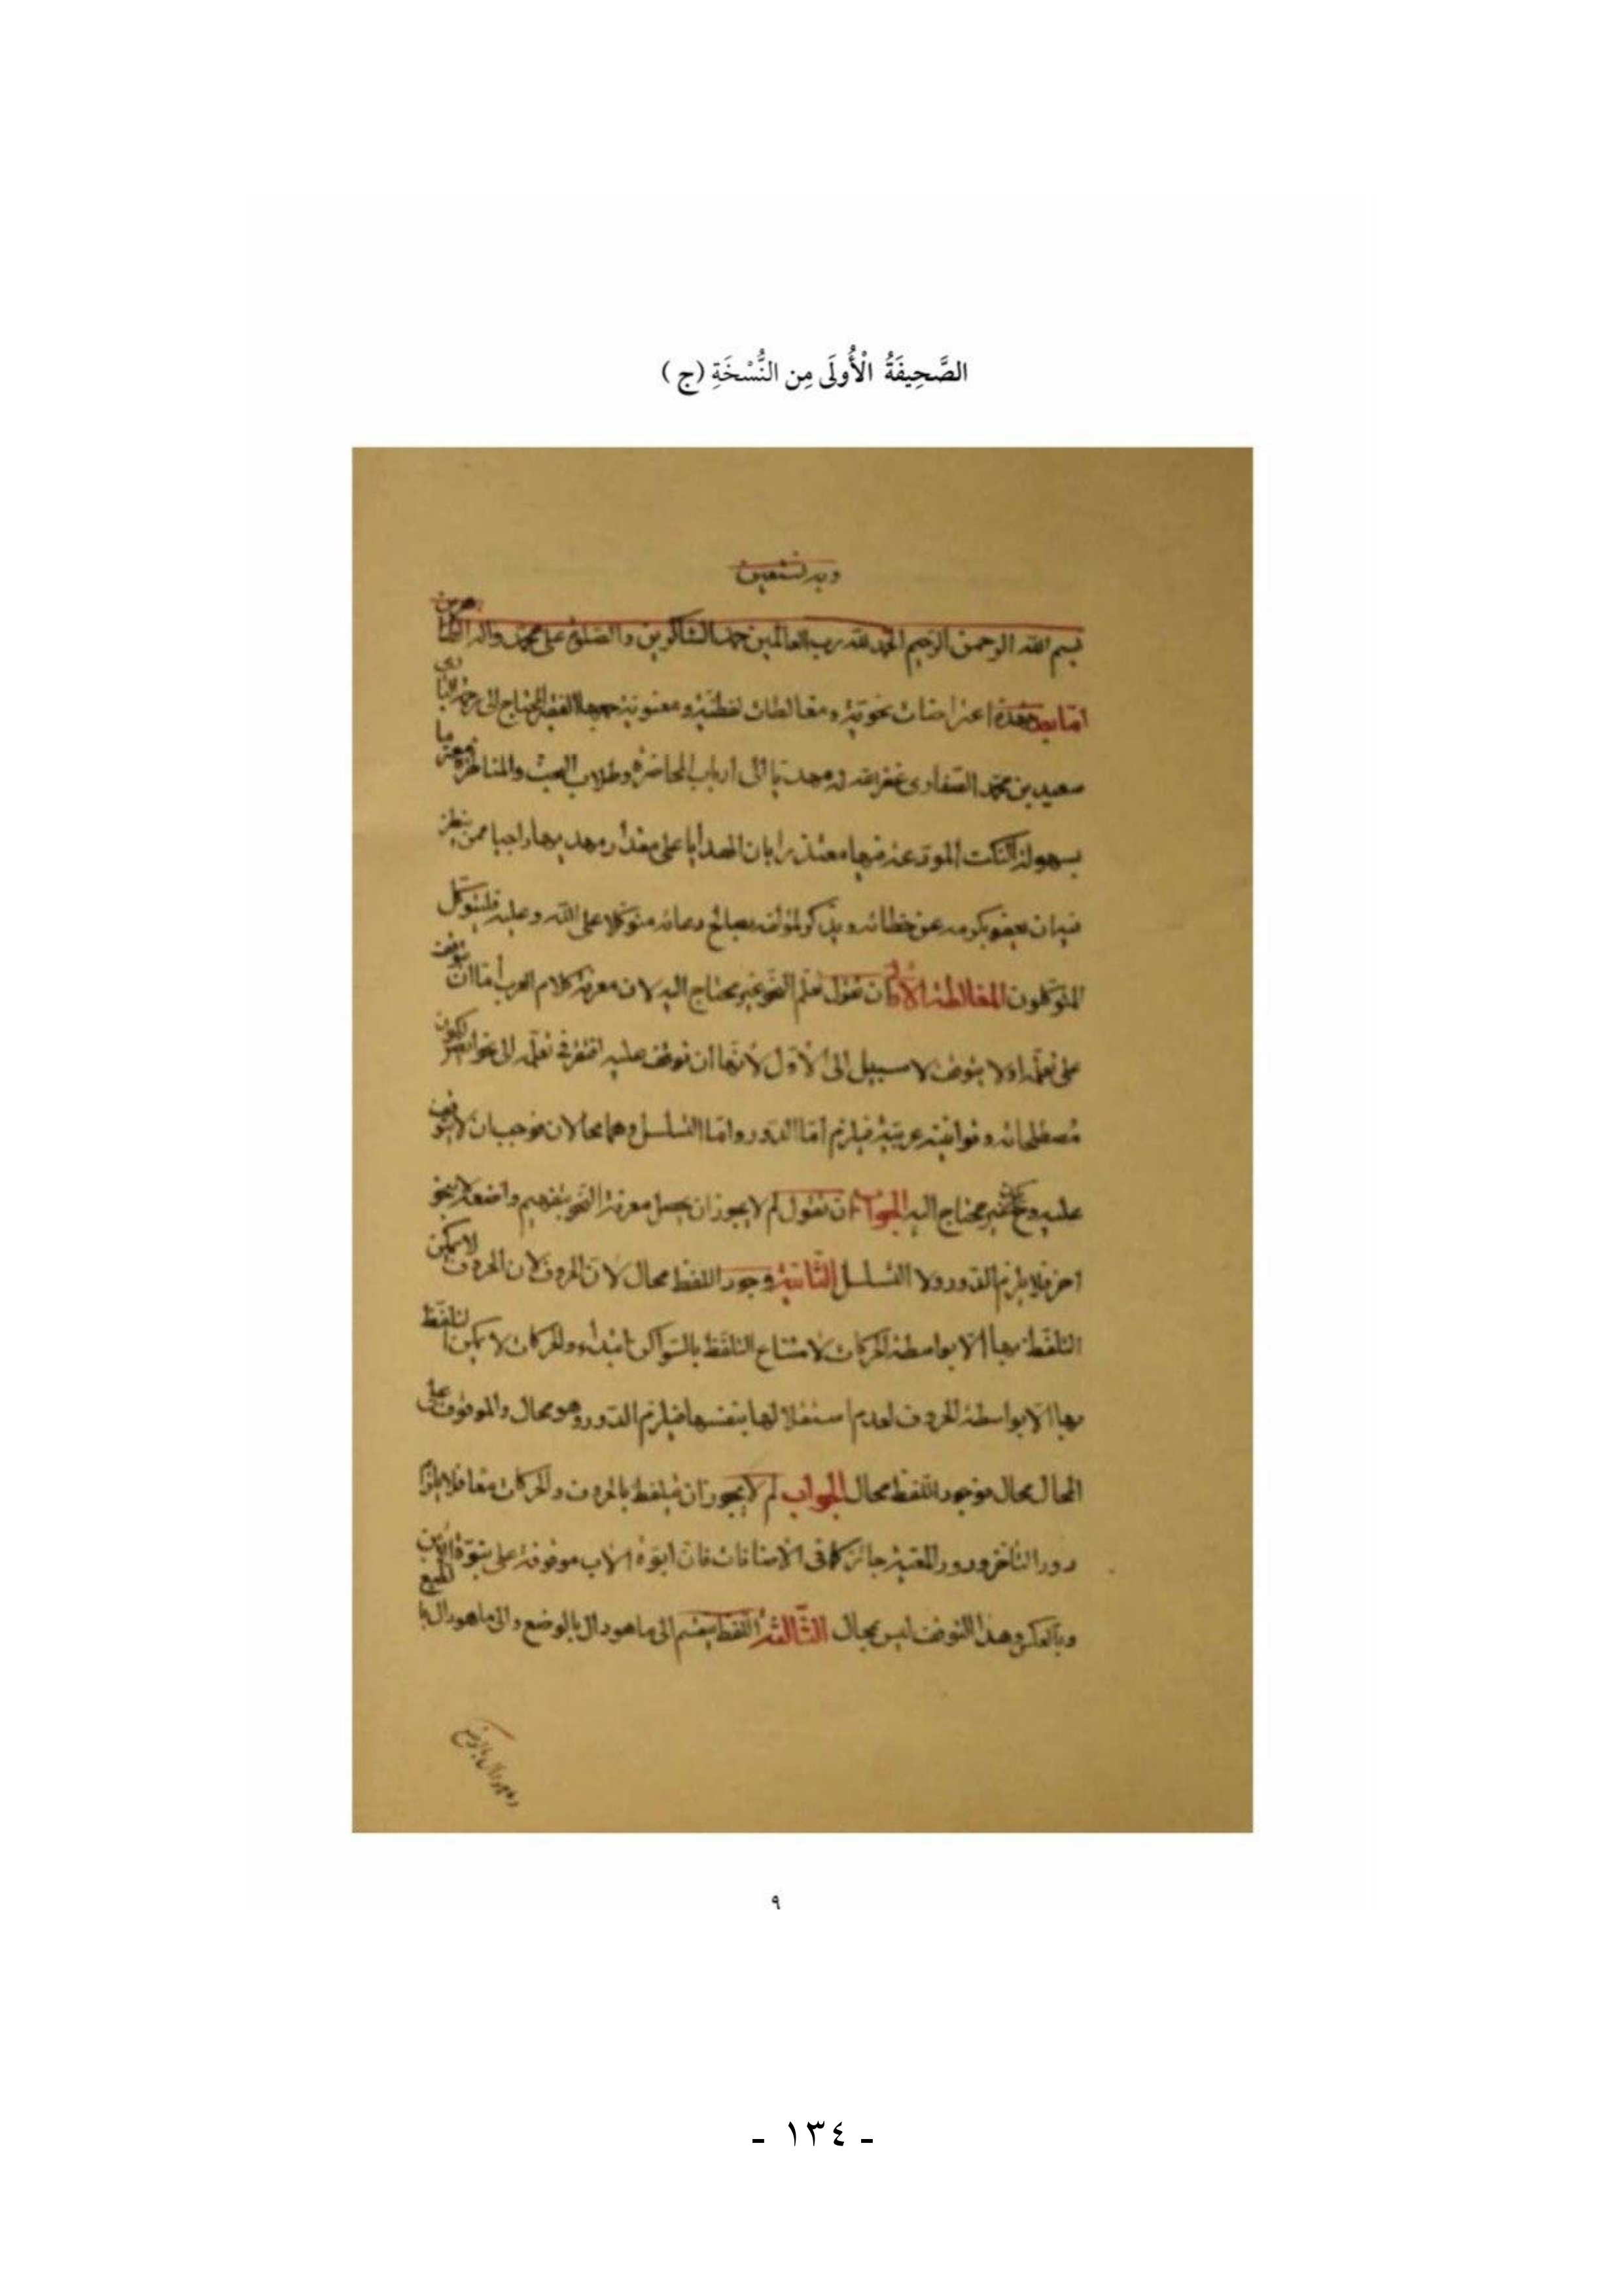 الصَّحِيفَةُ الْأُولَى مِن النُّسْخَةِ (ج)
وبه نستعين
بسم الله الرحمن الرحيم الحمد لله رب العالمين حمد الشاكرين والصلوة على محمد واله الطاهرين
اما بعد فهذه اعتراضات نحوية ومغالطات لفظية ومعنوية جمعها الفقير المحتاج الى رحمة
سعيد بن محمد غفر الله له مهديا الى ارباب المحاضرة وطلاب البحث والمناظرة معترفا
بسهولة النكت المودعة فيها معتذرا بان الهدايا على مقدار مهديها راجيا ممن ينظر
فيه ان يعفو بكرمه عن خطائه ويذكر لمؤلفه بصالح دعائه متوكلا على الله وعليه فليتوكل
المتوكلون المغالطة الاولى ان تقول تعلم النحو غير محتاج اليه لان معرفة كلام العرب اما ان يتوقف
على تعلمه اولا يتوقف لا سبيل الى الأول لأنها ان توقف عليه افتقر في تعلمه الى نحو اخر لكون
مصطلحاته وقوانينه عربية فيلزم اما الدور واما التسلسل وهما محالان فوجب ان لا يتوقف
عليه غير محتاج اليه الجواب ان تقول لم لا يجوز ان يحصل معرفة النحو بتفهيم واضعه لا بنحو
اخر فلا يلزم الدور ولا التسلسل الثانية وجود اللفظ محال لان الحروف لان الحروف لا يمكن
التلفظ بها الا بواسطة الحركات لامتناع التلفظ بالسواكن ابتداء والحركات لا يمكن التلفظ
بها الا بواسطة الحروف لعدم استقلالها بنفسها فيلزم الدور وهو محال والموقوف على
المحال محال فوجود اللفظ محال الجواب لم لا يجوز ان يتلفظ بالحروف والحركات معا فلا يلزم
دور التأخر ودور المعية جائز كما في الاضافات فان ابوة الأب موقوفة على بنوة الابن
وبالعكس وهذا التوقف ليس بمحال الثالثة اللفظ ينقسم الى ما هو دال بالوضع والى ما هو دال بالطبع
٩
- ١٣٤ -